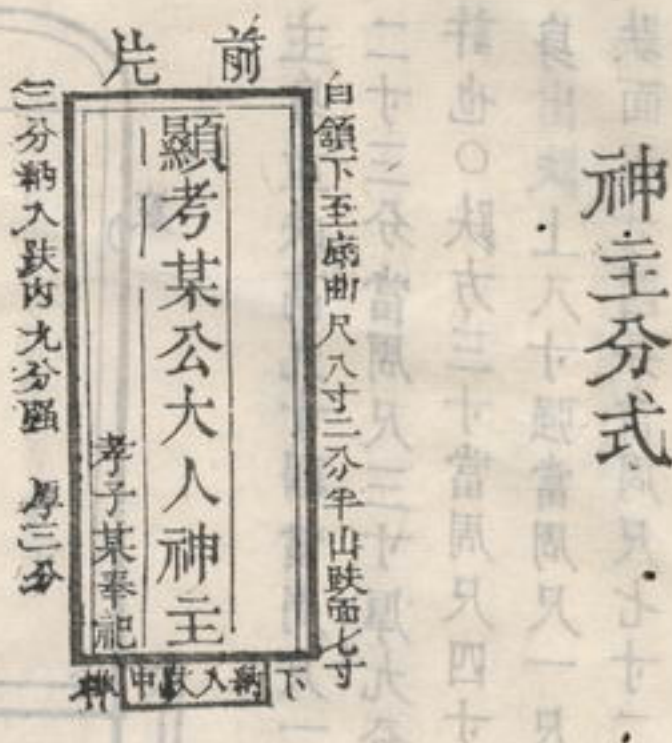 神主分式
前片
自領下至底曲尺八寸二分半出趺面七寸
顯考某公大人神主
孝子某奉祀
三分納入趺内九分强 厚三分
下納入趺中